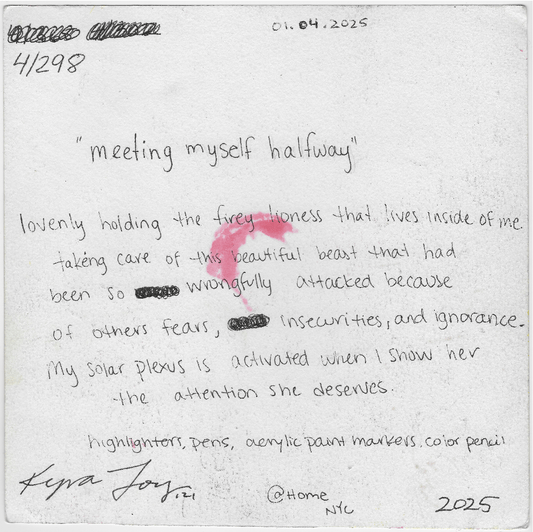 01.04.2025
4/298
"meeting myself halfway"
lovenly holding the firey lioness that lives inside of me.
taking care of this beautiful beast that had
been so wrongfully attacked because
of others fears, insecurities, and ignorance.
My solar plexus is activated when I show her
the attention she deserves.
highlighters, pens, acrylic paint markers, color pencil
@Home
NYC
2025